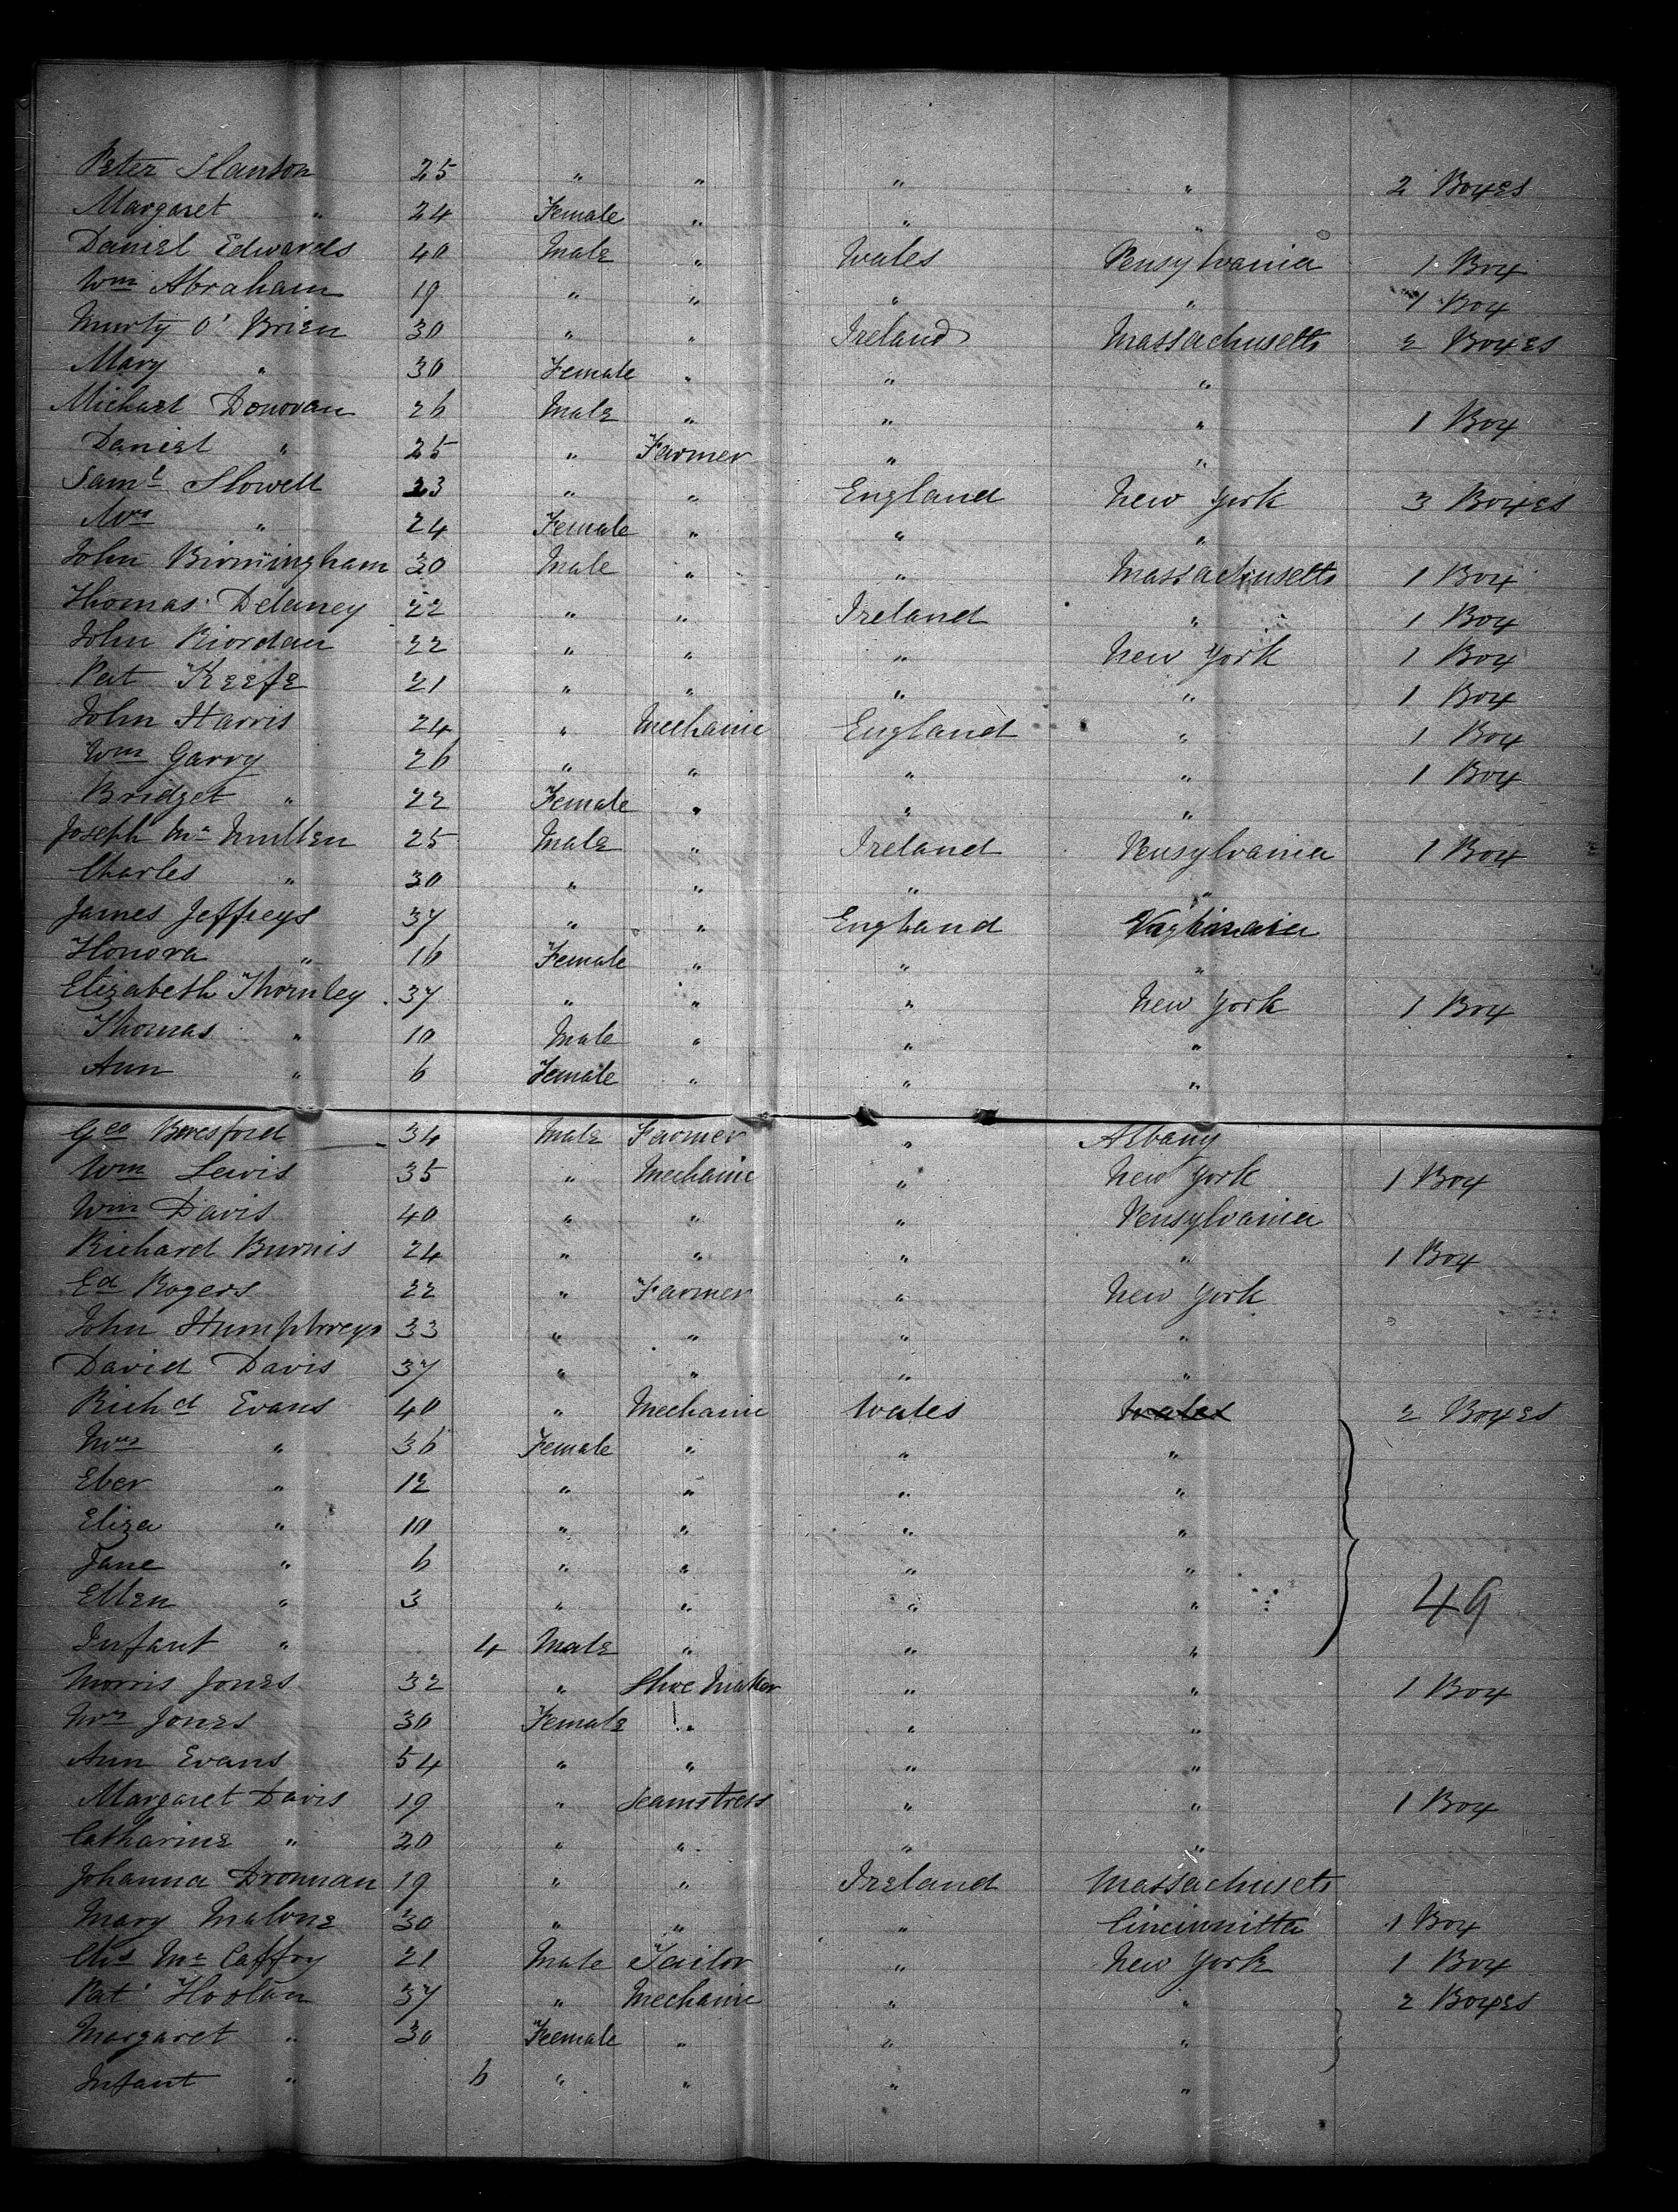 Peter Slanson 25 " " " " 2 Boxes
Margaret " 24 Female " " "
Daniel Edwards 40 Male " Wales Pensylvania 1 Box
Wm Abraham 19 " " " " 1 Box
Murty O'Brien 30 " " Ireland Massachusetts 2 Boxes
Mary " 30 Female " " "
Michael Donovan 26 Male " " " 1 Box
Daniel " 25 " Farmer " "
Saml Slowell 23 " " England New York 3 Boxes
Mrs " 24 Female " " "
John Birmingham 30 Male " " Massachusetts 1 Box
Thomas Delaney 22 " " Ireland " 1 Box
John Riordan 22 " " " New York 1 Box
Pat Keefe 21 " " " " 1 Box
John Harris 24 " Mechanic England " 1 Box
Wm Garry 26 " " " " 1 Box
Bridget " 22 Female " " "
Joseph Mc Mullen 25 Male " Ireland Pensylvania 1 Box
Charles " 30 " " " "
James Jeffreys 37 " " England
Honora " 16 Female " " "
Elizabeth Thornley 37 " " " New York 1 Box
Thomas " 10 Male " " "
Ann " 6 Female " " "
Geo Beresford 34 Male Farmer " Albany
Wm Lewis 35 " Mechanic " New York 1 Box
Wm Davis 40 " " " Pensylvania
Richard Burnis 24 " " " " 1 Box
Ed Rogers 22 " Farmer " New York
John Humphreys 33 " " " "
David Davis 37 " " " "
Richd Evans 40 " Mechanic Wales Wales 2 Boxes
Mrs " 36 Female " " "
Eber " 12 " " " "
Eliza " 10 " " " "
Jane " 6 " " " "
Ellen " 3 " " " " 49
Infant " 4 Male " " "
Morris Jones 32 " Shoe Maker " " 1 Box
Mrs Jones 30 Female " " "
Ann Evans 54 " " " "
Margaret Davis 19 " Seamstress " " 1 Box
Catharine " 20 " " " "
Johanna Dronnan 19 " " Ireland Massachusets
Mary Malone 30 " " " Cincinnitta 1 Box
Chs Mc Caffry 21 Male Tailor " New York 1 Box
Pat Hoolan 37 " Mechanic " " 2 Boxes
Margaret " 30 Feemale " " "
Infant " 6 " " " "